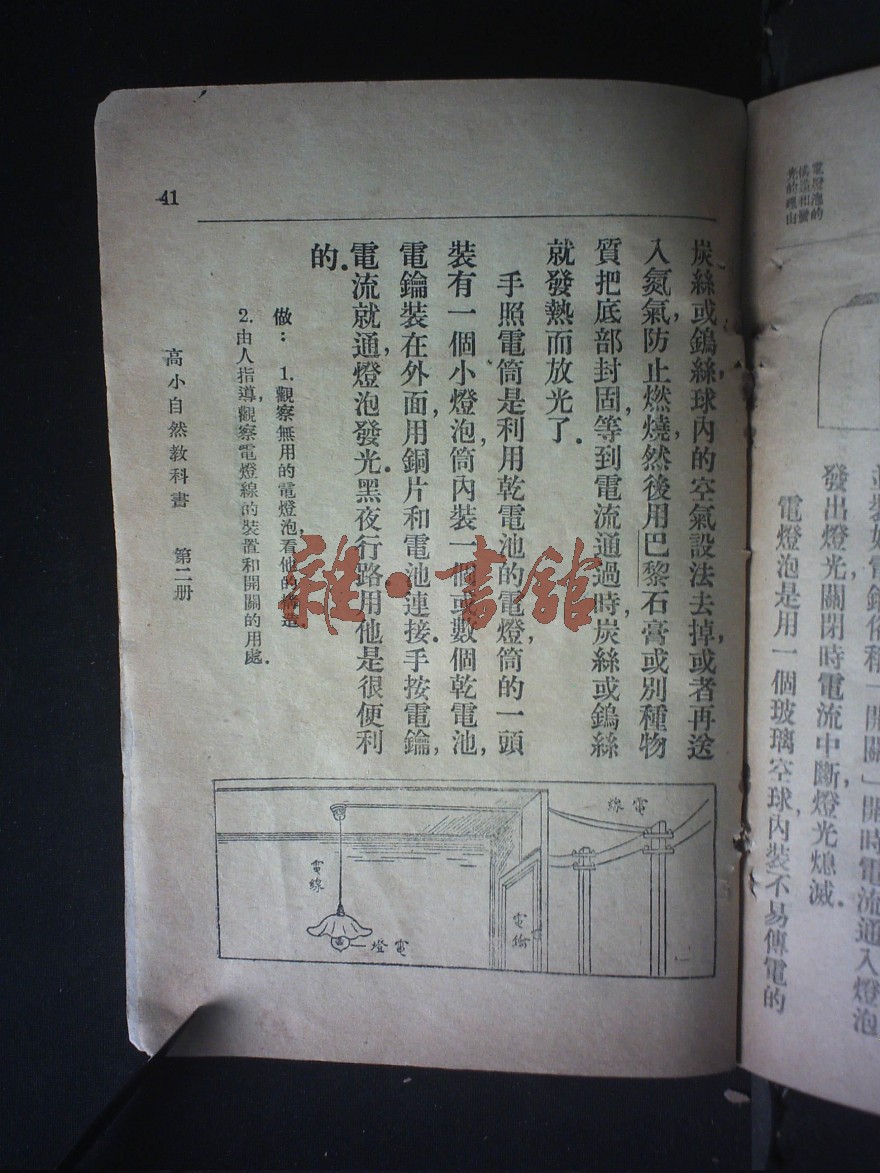 電燈泡的
構造和發
光的理由
並裝好電鑰俗稱「開關」開時電流通入燈泡
發出燈光,關閉時電流中斷,燈光熄滅.
電燈泡是用一個玻璃空球,內裝不易傳電的
41
炭絲或鎢絲,球內的空氣設法去掉,或者再送
入氮氣,防止燃燒,然後用巴黎石膏或別種物
質把底部封固,等到電流通過時,炭絲或鎢絲
就發熱而放光了.
手照電筒是利用乾電池的電燈,筒的一頭
裝有一個小燈泡,筒內裝一個或數個乾電池,
電鑰裝在外面,用銅片和電池連接.手按電鑰,
電流就通,燈泡發光.黑夜行路,用他是很便利
的.
做: 1.觀察無用的電燈泡,看他的構造.
2.由人指導,觀察電燈線的裝置和開關的用處.
高小自然教科書 第二册
電線
電鑰
電線
電燈
雜·書館